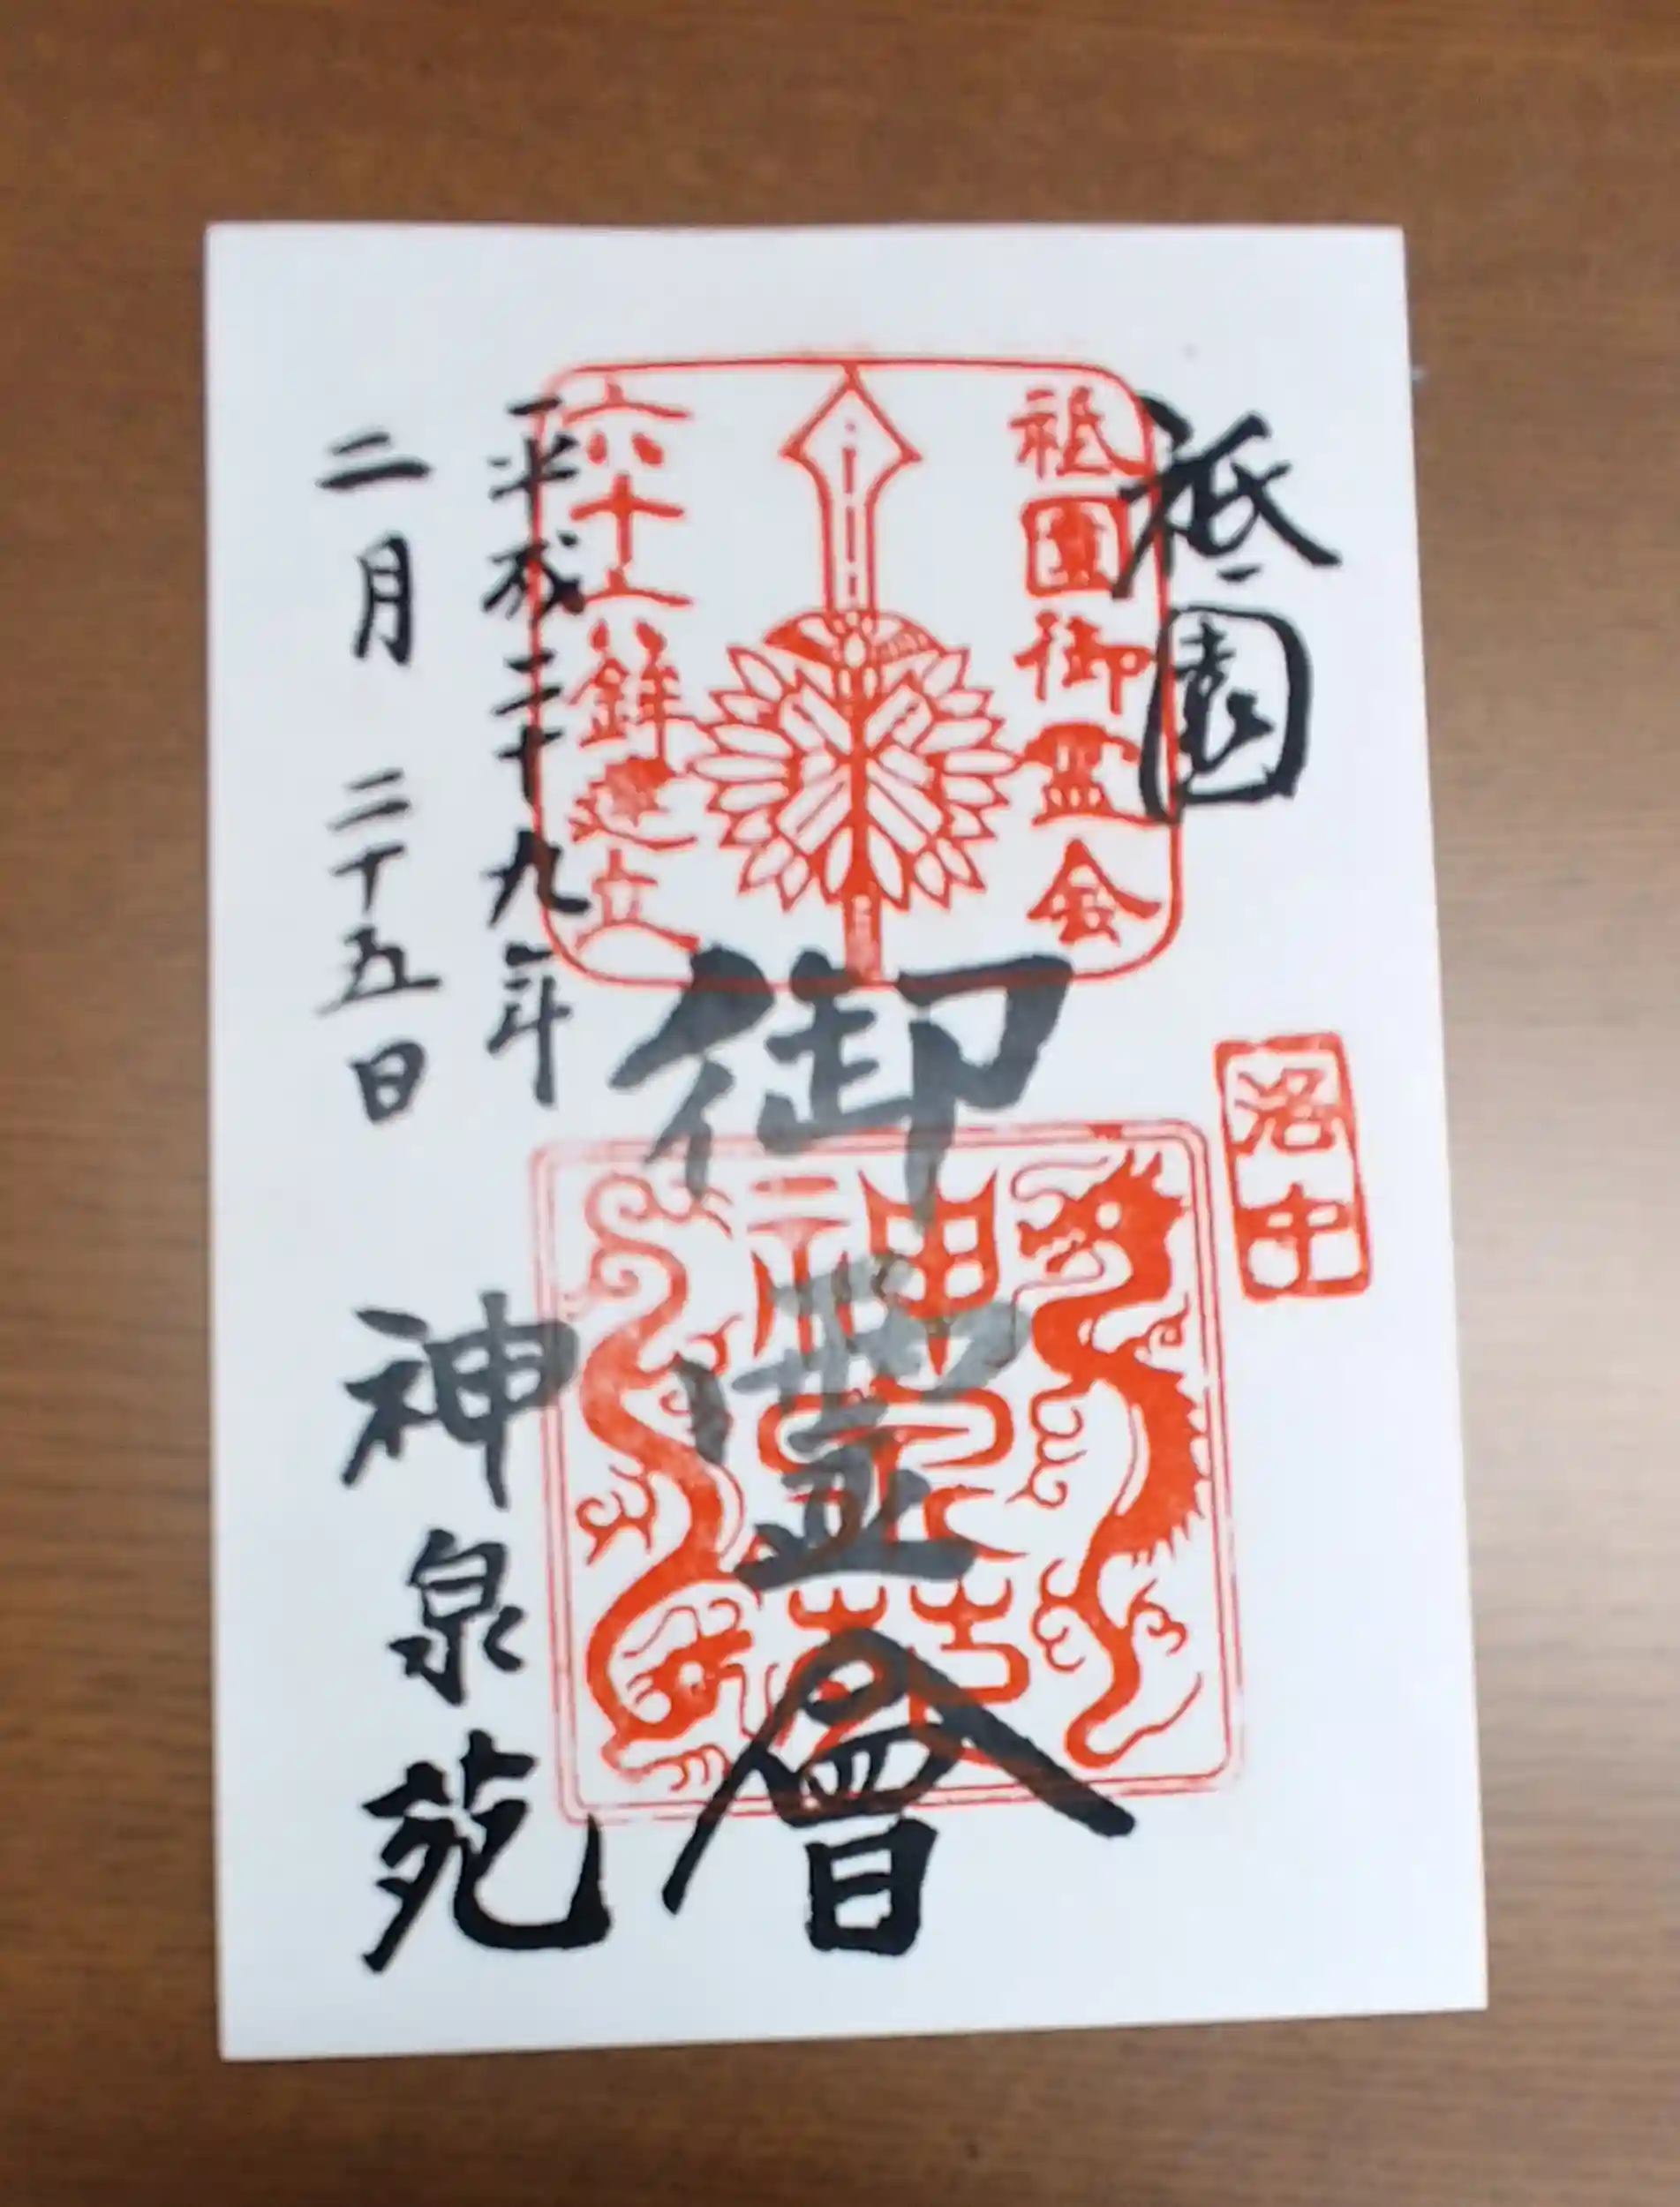 祇園
祇園御霊会
洛中
御霊會
神泉苑
六十六鉾建立
平成二十九年
二月 二十五日
神泉苑